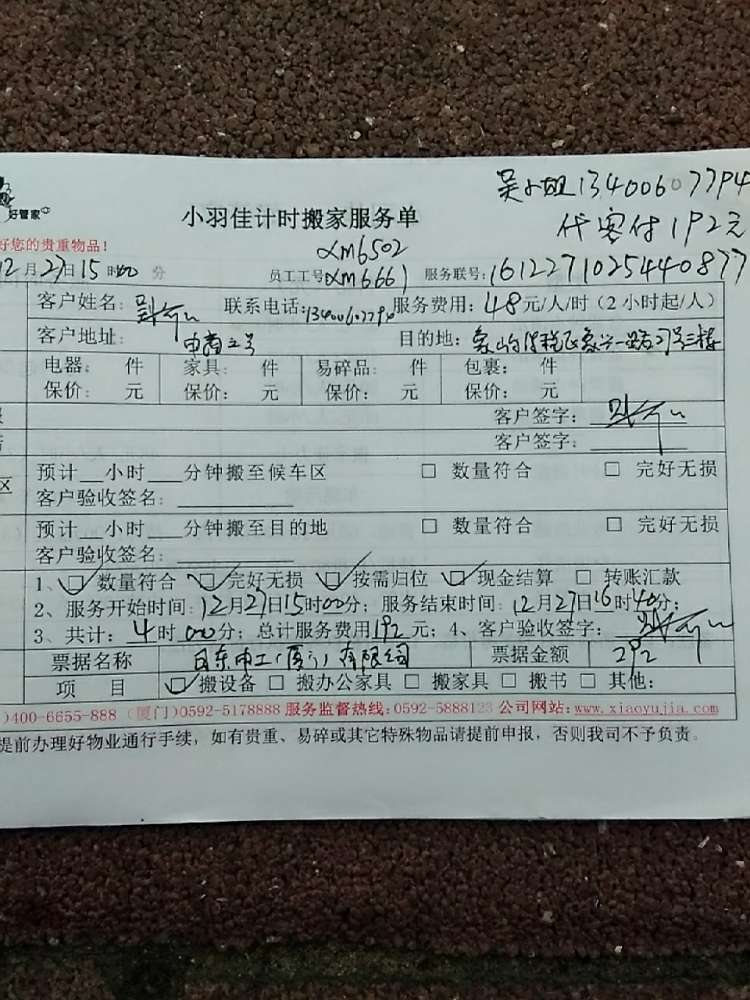 吴小姐13400607794
好管家
小羽佳计时搬家服务单
代客付192元
好您的贵重物品!
xm6502
12月27日15时00分 员工工号xm6661 服务联号:1612271025440877
客户姓名: 联系电话:13400607794 服务费用:48元/人/时(2小时起/人)
客户地址: 目的地:
电器: 件 家具: 件 易碎品: 件 包裹: 件
保价: 元 保价: 元 保价: 元 保价: 元
客户签字:
客户签字:
预计 小时 分钟搬至候车区 □ 数量符合 □ 完好无损
区
客户验收签名:
预计 小时 分钟搬至目的地 □ 数量符合 □ 完好无损
客户验收签名:
1、☑ 数量符合 ☑ 完好无损 ☑ 按需归位 ☑ 现金结算 □ 转账汇款
2、服务开始时间:12月27日15时00分;服务结束时间:12月27日16时40分;
3、共计:4时00分;总计服务费用192元;4、客户验收签字:
票据名称 日东电工(厦门)有限公司 票据金额 292
项 目 ☑搬设备 □ 搬办公家具 □ 搬家具 □ 搬书 □ 其他:
)400-6655-888 (厦门)0592-5178888 服务监督热线:0592-5888123 公司网站:www.xiaoyujia.com
提前办理好物业通行手续,如有贵重、易碎或其它特殊物品请提前申报,否则我司不予负责。